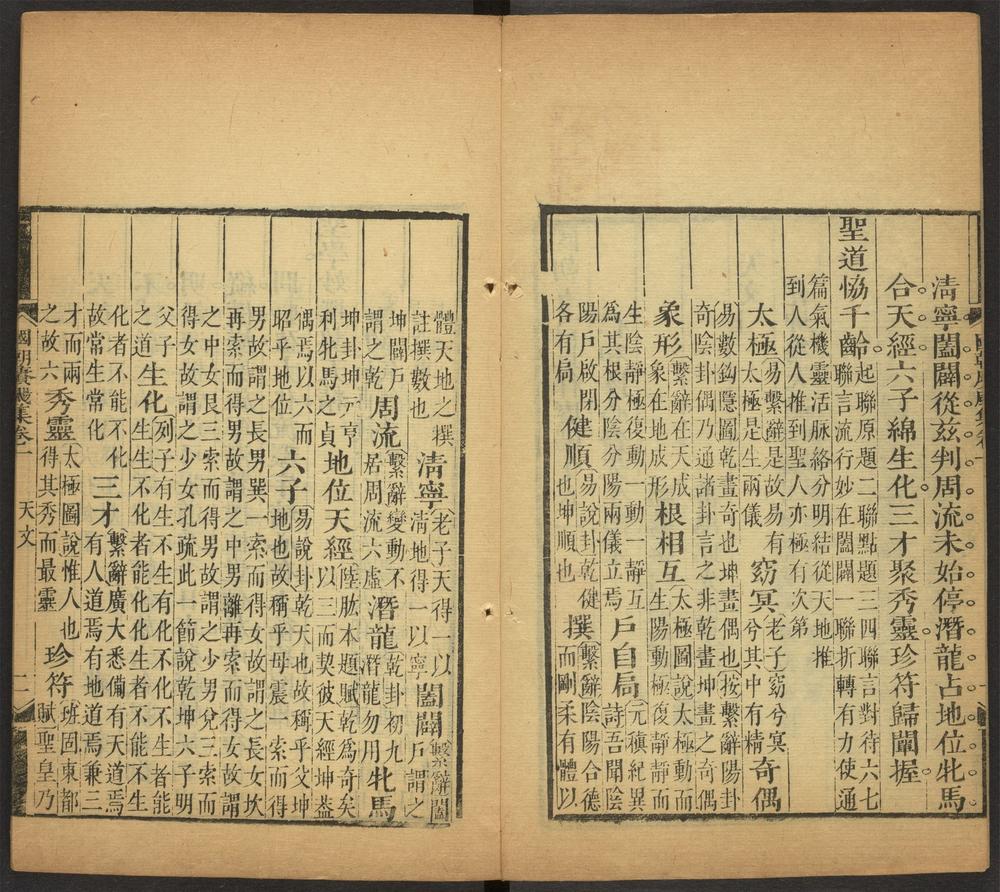 清寧闔闢從兹判周流未始停潛龍占地位牝馬
合天經六子綿生化三才聚秀靈珍符歸闡握
聖道恊千齡起聯原題二聯點題三四聯言對待六七
聯言流行妙在闔闢一聯折轉有力使通
篇氣機靈活脉絡分明結從天地推
到人從人推到聖人亦極有次第
太極易繫辭是故易有
太極是生兩儀窈冥老子窈兮冥
兮其中有精奇偶
易數鈎隱圖乾畫奇也坤畫偶也按繫辭陽卦
奇陰卦偶乃通諸卦言之非乾畫坤畫之奇偶
象形繫辭在天成
象在地成形根相互太極圖說太極動而
生陽動極復靜靜而
生陰靜極復動一動一靜互
爲其根分陰分陽兩儀立焉戸自局元稹紀異
詩吾聞陰
陽戸啟閉
各有局健順易說卦乾健
也坤順也撰繫辭陰陽合德
而剛柔有體以
體天地之撰
註撰數也清寧老子天得一以
清地得一以寧闔闢繫辭闔
戸謂之
坤闢戸
謂之乾周流繫辭變動不
居周流六虛潛龍乾卦初九
潛龍勿用牝馬
坤卦坤元亨
利牝馬之貞地位天經陸肱本題賦乾爲奇矣
以三而契彼天經坤葢
偶焉以六而
昭乎地位六子易說卦乾天也故稱乎父坤
地也故稱乎母震一索而得
男故謂之長男巽一索而得女故謂之長女坎
再索而得男故謂之中男離再索而得女故謂
之中女艮三索而得男故謂之少男兌三索而
得女故謂之少女孔疏此一節說乾坤六子明
父子
之道生化列子有生不生有化不化不生者能
生生不化者能化化生者不能不生
化者不能不化
故常生常化三才繫辭廣大悉備有天道焉
有人道焉有地道焉兼三
才而兩
之故六秀靈太極圖說惟人也
得其秀而最靈珍符班固東都
賦聖皇乃
天文